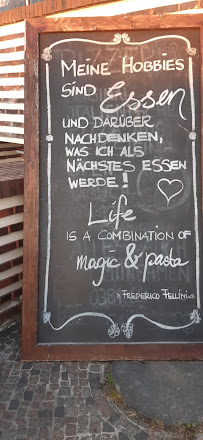 MEINE HOBBIES
SIND Essen
UND DARÜBER
NACHDENKEN,
WAS ICH ALS
NÄCHSTES ESSEN
WERDE!
Life
IS A COMBINATION OF
magic & pasta
FREDERICO FELLINI